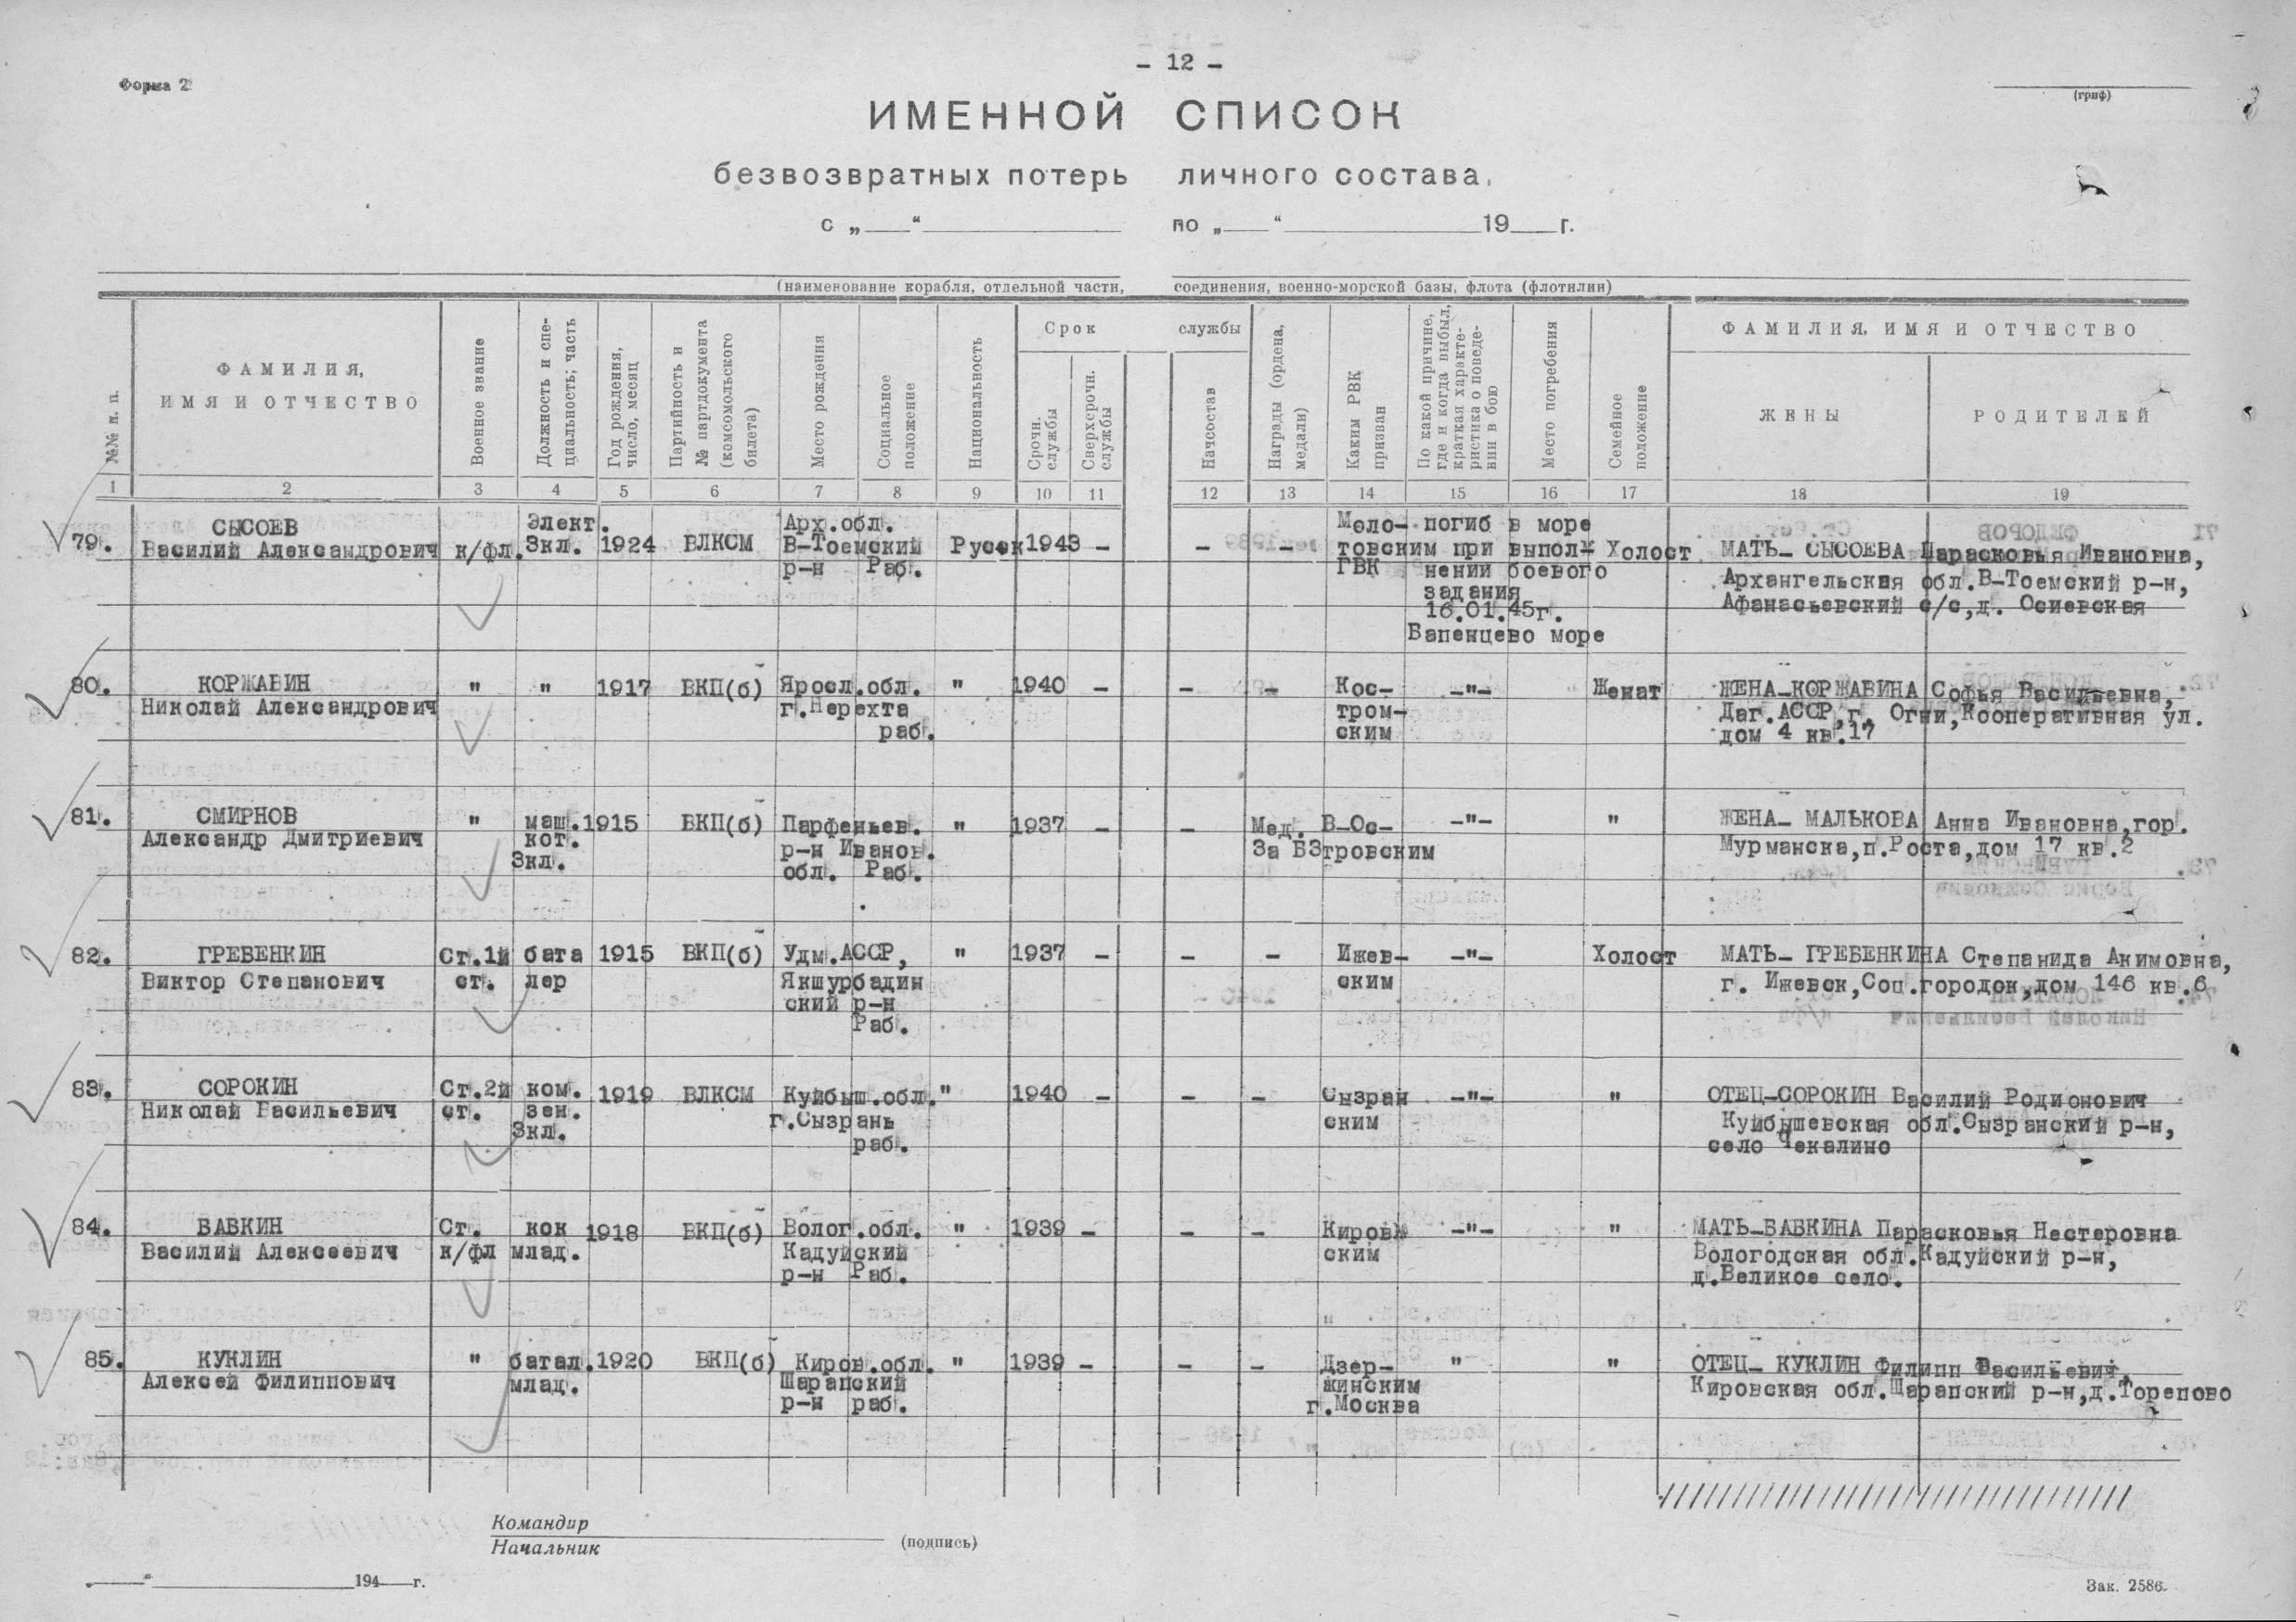 - 12 -
Форма 2
(гриф)
ИМЕННОЙ СПИСОК
безвозвратных потерь личного состава,
с „___“ ____________ по „___“ ____________ 19___г.
(наименование корабля, отдельной части, соединения, военно-морской базы, флота (флотилии)
№№ п. п.
ФАМИЛИЯ, ИМЯ И ОТЧЕСТВО
Военное звание
Должность и специальность; часть
Год рождения, число, месяц
Партийность и № партдокумента (комсомольского билета)
Место рождения
Социальное положение
Национальность
Срок службы
Срочн. службы
Сверхсрочн. службы
Начсостав
Награды (ордена, медали)
Каким РВК призван
По какой причине, где и когда выбыл, краткая характеристика о поведении в бою
Место погребения
Семейное положение
ФАМИЛИЯ, ИМЯ И ОТЧЕСТВО
ЖЕНЫ
РОДИТЕЛЕЙ
1 2 3 4 5 6 7 8 9 10 11 12 13 14 15 16 17 18 19
79. СЫСОЕВ Элект. Арх.обл. Моло- погиб в море
Василий Александрович к/фл. Зкл. 1924 ВЛКСМ В-Тоемский Русск 1943 - - - товским при выпол- Холост МАТЬ- СЫСОЕВА Парасковья Ивановна,
р-н Раб. ГВК нении боевого Архангельская обл.В-Тоемский р-н,
задания Афанасьевский с/с,д. Осиевская
16.01.45г.
Вапенцево море
80. КОРЖАВИН " " 1917 ВКП(б) Яросл.обл. " 1940 - - - Кос- -"- Женат ЖЕНА-КОРЖАВИНА Софья Васильевна,
Николай Александрович г.Нерехта тром- Даг.АССР,г. Огни,Кооперативная ул.
раб. ским дом 4 кв.17
81. СМИРНОВ " маш. 1915 ВКП(б) Парфеньев. " 1937 - - Мед. В-Ос- -"- " ЖЕНА- МАЛЬКОВА Анна Ивановна,гор.
Александр Дмитриевич кот. р-н Иванов. За БЗтровским Мурманска,п.Роста,дом 17 кв.2
Зкл. обл. Раб.
82. ГРЕВЕНКИН Ст.1й бата 1915 ВКП(б) Удм.АССР, " 1937 - - - Ижев- -"- Холост МАТЬ- ГРЕБЕНКИНА Степанида Акимовна,
Виктор Степанович ст. лер Якшурбадин ским г. Ижевск,Соц.городок,дом 146 кв.6
ский р-н
Раб.
83. СОРОКИН Ст.2й ком. 1919 ВЛКСМ Куйбыш.обл." 1940 - - - Сызран -"- " ОТЕЦ-СОРОКИН Василий Родионович
Николай Васильевич ст. зен. г.Сызрань ским Куйбышевская обл.Сызранский р-н,
Зкл. раб. село Чекалино
84. БАБКИН Ст. кок 1918 ВКП(б) Волог.обл. " 1939 - - - Киров -"- " МАТЬ-БАБКИНА Парасковья Нестеровна
Василий Алексеевич к/фл млад. Кадуйский ским Вологодская обл.Кадуйский р-н,
р-н Раб. д.Великое село.
85. КУКЛИН " батал. 1920 ВКП(б) Киров.обл. " 1939 - - - Дзер- " " ОТЕЦ- КУКЛИН Филипп Васильевич,
Алексей Филиппович млад. Шарапский жинским Кировская обл.Шарапский р-н,д.Торепово
р-н раб. г.Москва
Командир
Начальник
(подпись)
„___“ ____________ 194___г.
Зак. 2586.